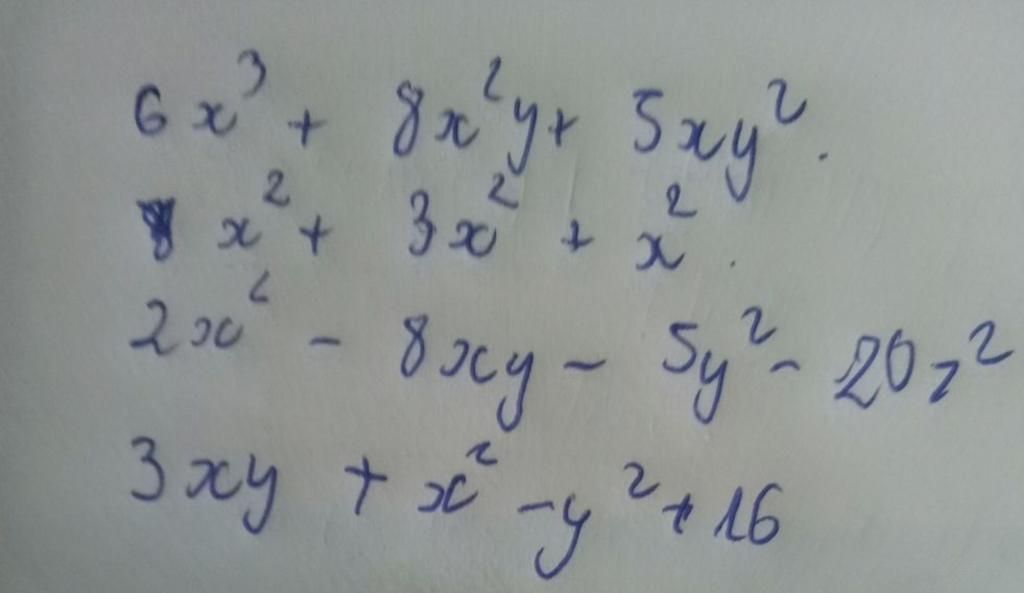 6x³ + 8x²y + 5xy².
x² + 3x² + x².
2x² - 8xy - 5y² - 20z²
3xy + x² - y² + 16